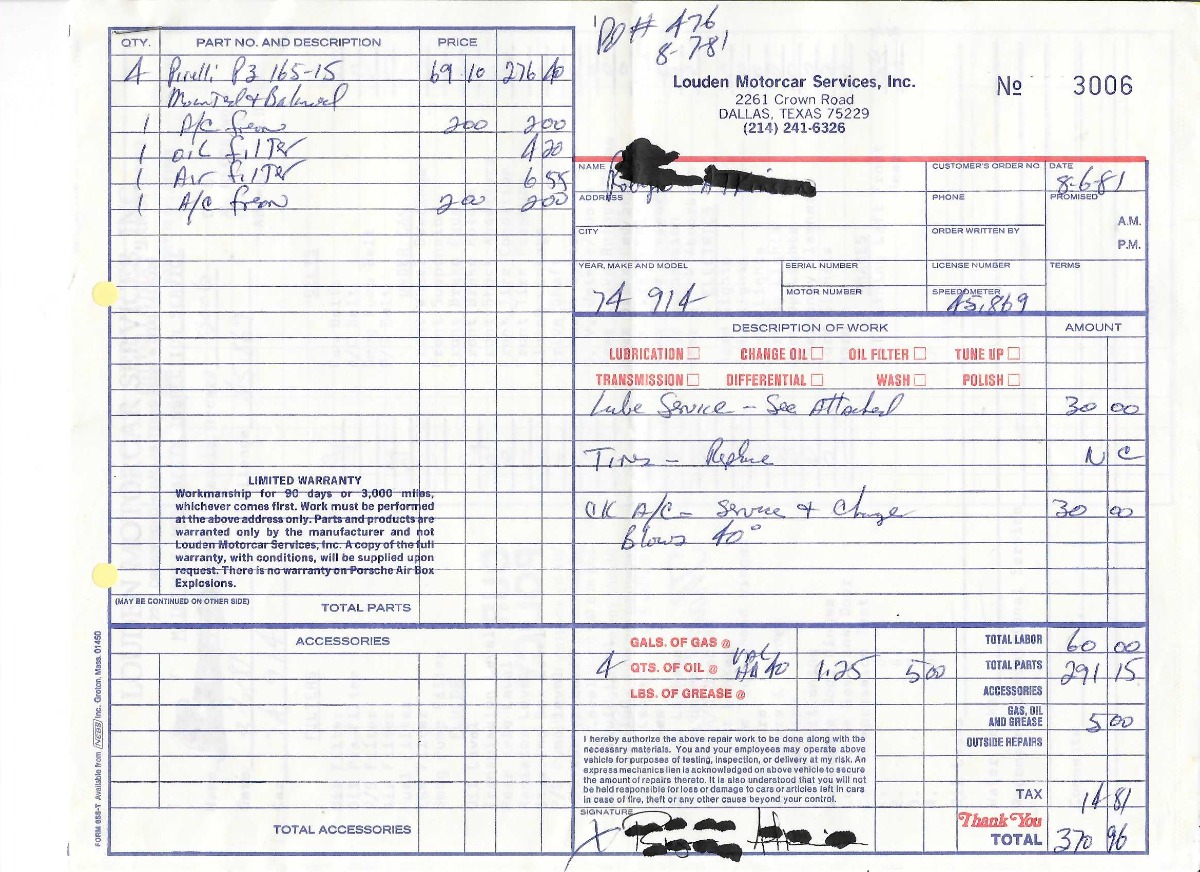 PD # 476
8-7-81
QTY. PART NO. AND DESCRIPTION PRICE
4 Pirelli P3 165-15 69 10 276 40
Mounted & Balanced
1 A/C freon 200 200
1 oil filter 4 20
1 Air filter 6 55
1 A/C freon 200 200
LIMITED WARRANTY
Workmanship for 90 days or 3,000 miles,
whichever comes first. Work must be performed
at the above address only. Parts and products are
warranted only by the manufacturer and not
Louden Motorcar Services, Inc. A copy of the full
warranty, with conditions, will be supplied upon
request. There is no warranty on Porsche Air Box
Explosions.
(MAY BE CONTINUED ON OTHER SIDE) TOTAL PARTS
ACCESSORIES
TOTAL ACCESSORIES
FORM 658-T Available from NEBS Inc. Groton, Mass. 01450
Louden Motorcar Services, Inc.
2261 Crown Road
DALLAS, TEXAS 75229
(214) 241-6326
No 3006
NAME CUSTOMER'S ORDER NO. DATE
8-6-81
ADDRESS PHONE PROMISED
A.M.
CITY ORDER WRITTEN BY
P.M.
YEAR, MAKE AND MODEL SERIAL NUMBER LICENSE NUMBER TERMS
74 914 MOTOR NUMBER SPEEDOMETER
45,869
DESCRIPTION OF WORK AMOUNT
LUBRICATION CHANGE OIL OIL FILTER TUNE UP
TRANSMISSION DIFFERENTIAL WASH POLISH
Lube Service - See Attached 30 00
Tires - Replace N C
CK A/C - Service & Charge 30 00
Blows 40°
GALS. OF GAS @ TOTAL LABOR 60 00
4 QTS. OF OIL @ VAL 40 1.25 5 00 TOTAL PARTS 291 15
LBS. OF GREASE @ ACCESSORIES
GAS, OIL
AND GREASE 5 00
OUTSIDE REPAIRS
I hereby authorize the above repair work to be done along with the
necessary materials. You and your employees may operate above
vehicle for purposes of testing, inspection, or delivery at my risk. An
express mechanics lien is acknowledged on above vehicle to secure
the amount of repairs thereto. It is also understood that you will not
be held responsible for loss or damage to cars or articles left in cars
in case of fire, theft or any other cause beyond your control.
TAX 14 81
SIGNATURE X
Thank You
TOTAL 370 96